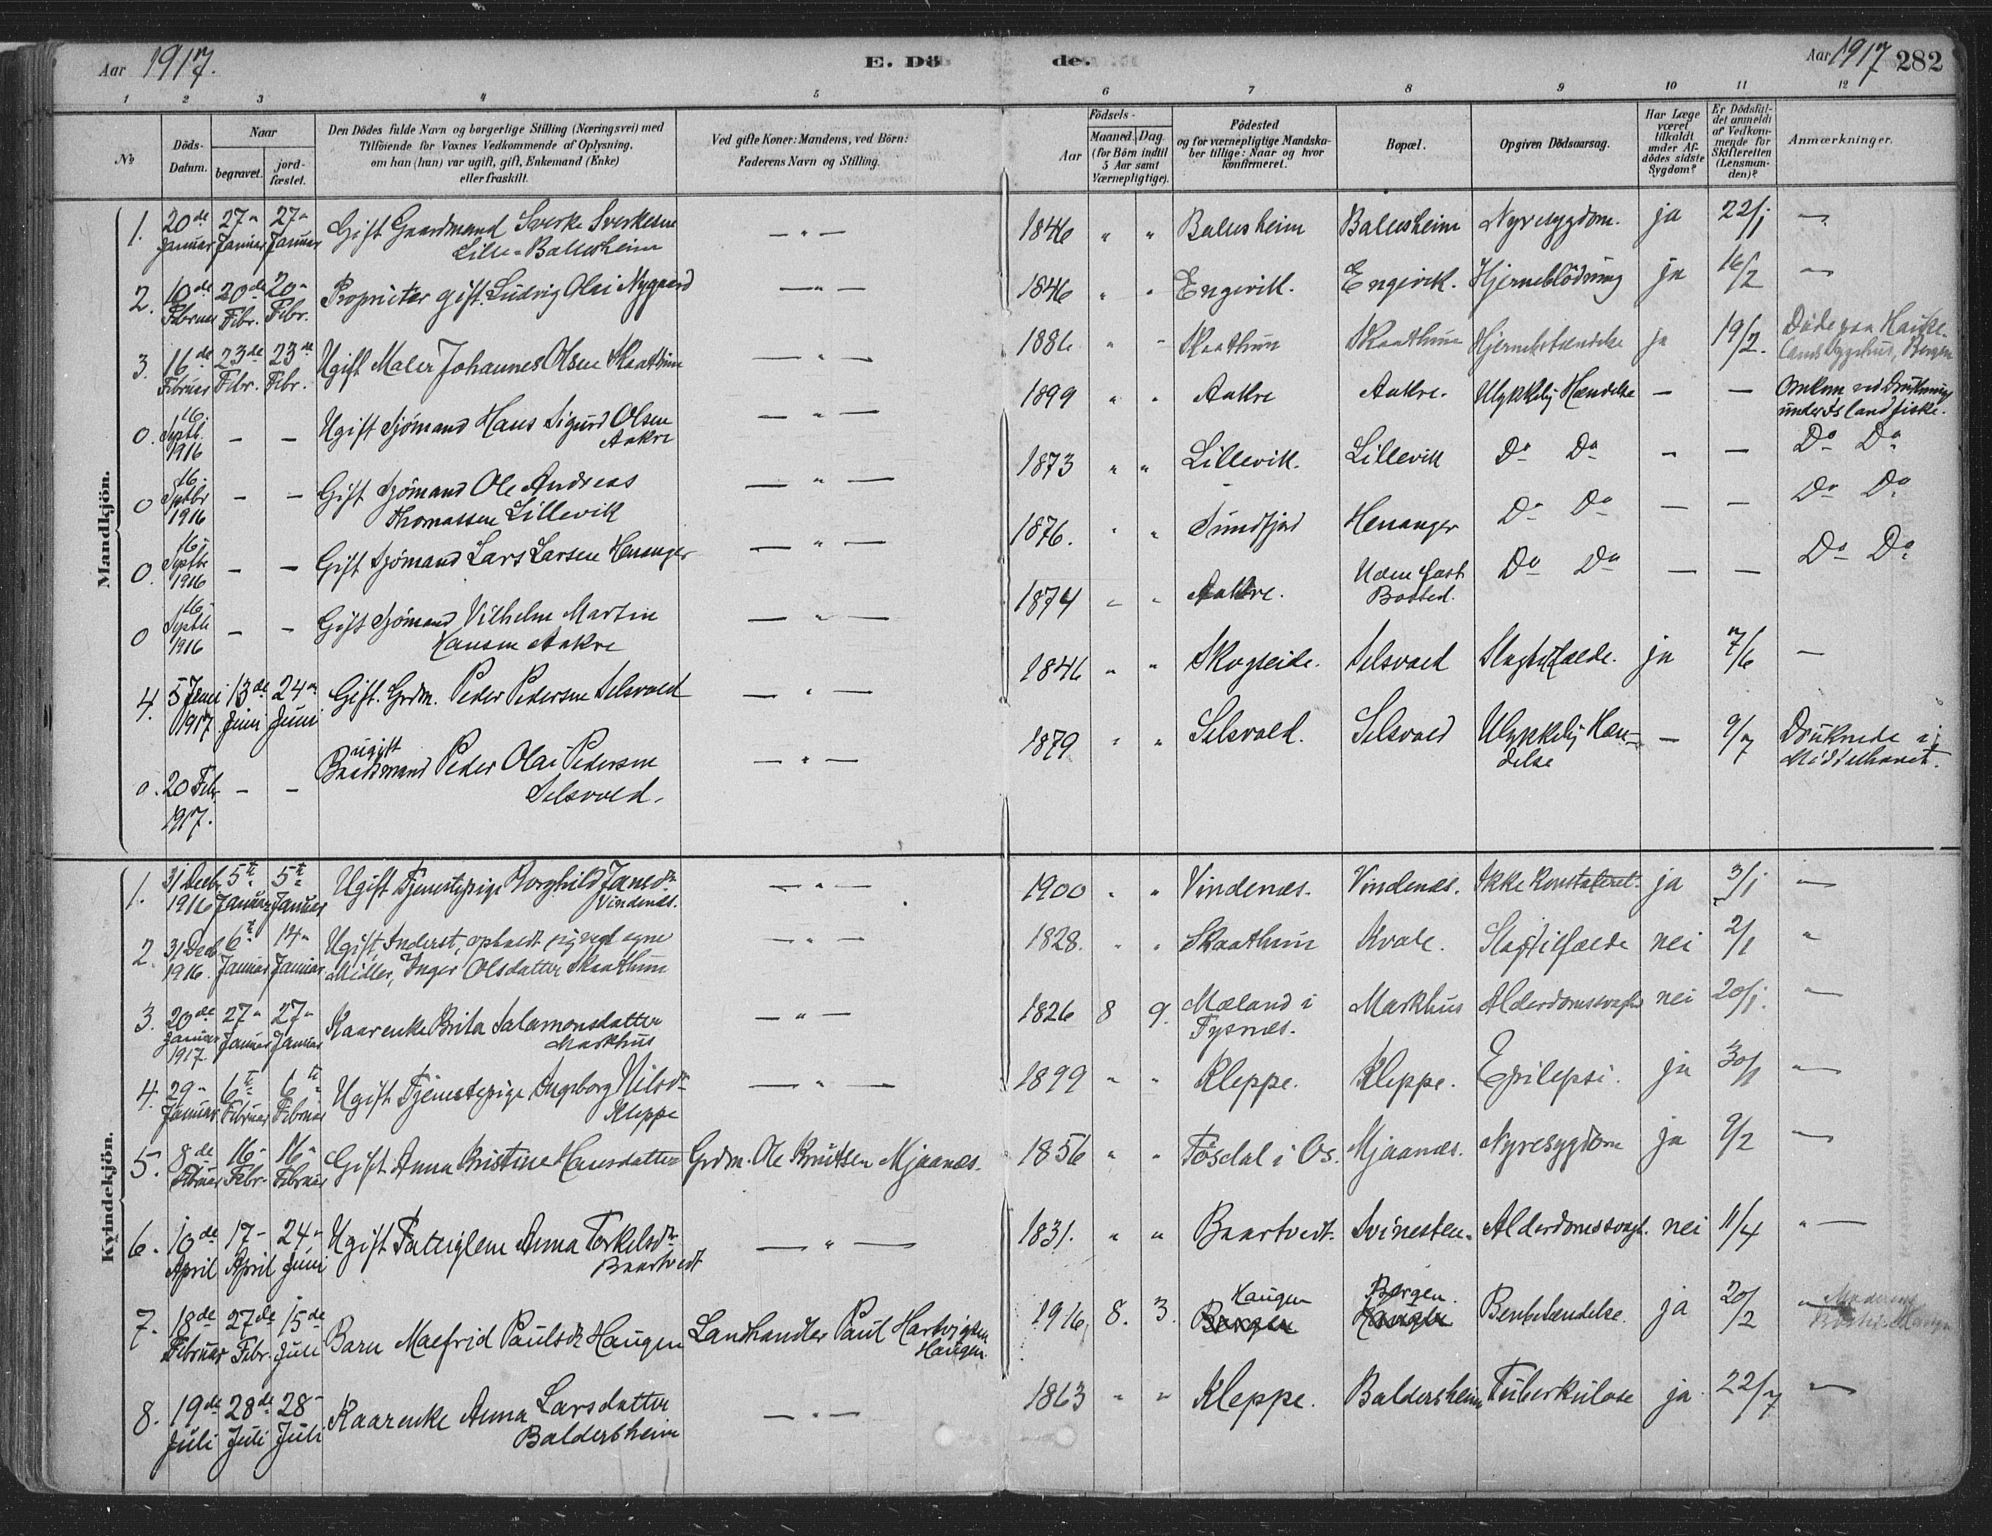 Aar 1917. E. Dö de. Aar 1917 282
1 2 3 4 5 6 7 8 9 10 11 12
No
Döds-Datum.
Naar
begravet.
jord-fæstet.
Den Dödes fulde Navn og borgerlige Stilling (Næringsvei) med
Tilföiende for Voxnes Vedkommende af Oplysning,
om han (hun) var ugift, gift, Enkemand (Enke)
eller fraskilt.
Ved gifte Koner: Mandens, ved Börn:
Faderens Navn og Stilling.
Födsels-
Aar
Maaned. Dag.
(for Börn indtil
5 Aar samt
Værnepligtige).
Födested
og for værnepligtige Mandska-
ber tillige: Naar og hvor
konfirmeret.
Bopæl.
Opgiven Dödsaarsag.
Har Læge
været
tilkaldt
under Af-
dödes sidste
Sygdom?
Er Dödsfal-
det anmeldt
af Vedkom-
mende for
Skifteretten
(Lensman-
den)?
Anmærkninger.
Mandkjön.
1. 20de Januar 27" Januar 27" Januar Gift Gaardmand Sverke Sverkesen Lille-Ballesheim — " — 1846 " " Ballesheim Ballesheim Nyresygdom. ja 22/1 —"—
2. 10de Februar 20de Febr. 20" Febr. Proprietær gift. Ludvig Olai Nygaard — " — 1846 " " Engevik. Engevik. Hjerneblödning ja 16/2 —
3. 16de Februar 23de Febr. 23de Febr. Ugift Maler Johannes Olsen Skaathun — " — 1886 " " Skaathun Skaathun Hjernebetændelse ja 19/2. Döde paa Hauke-
lands Sygehus, Bergen
0. 16. Septb. 1916 — — Ugift Sjömand Hans Sigurd Olsen Aakre — " — 1899 " " Aakre Aakre. Ulykkelig Hændelse — — Omkom ved Drukning
under Islandfiske.
0 16. Septbr 1916 — — Gift Sjömand Ole Andreas Thomassen Lillevik — " — 1873 " " Lillevik. Lillevik Do Do — — Do Do
0. 16. Septbr 1916 — — Gift Sjömand Lars Larsen Henanger — " — 1876. " " Sundfjord Henanger Do Do — — Do Do
0 16. Septb 1916 — — Gift Sjömand Vilhelm Martin Hansen Aakre — " — 1874 " " Aakre. Uden fast Bosted. Do Do — — Do Do
4. 5 Juni 1917 13de Juni 24" Juni Gift. Grdm. Peder Pedersen Selsvold — " — 1846 " " Skogseide. Selsvold Slagtilfælde. ja 7/6 —
0. 20 Feb. 1917. — — ugift Baadsmand Peder Olai Pedersen Selsvold. — " — 1879 " " Selsvold. Selsvold Ulykkelig Hæn-
delse — 9/7 Druknede i
Middelhavet.
Kvindekjön.
1. 31 Decb. 1916 5te Januar 5te Januar Ugift Tjenestepige Borghild Jansdr Vindenæs. — " — 1900 " " Vindenæs. Vindenæs. Ikke konstateret. ja 3/1 —"—
2. 31 Decb. 1916. 6te Januar 14" Januar Ugift, Inderst, opholdt sig ved egne
Midler, Inger Olsdatter Skaathun — " — 1828. " " Skaathun Kvale. Slagtilfælde nei 2/1 "
3. 20de Januar 1917. 27" Januar 27" Januar Kaarenke Brita Salamonsdatter Markhus — " — 1826 8 9. Mæland i Tysnæs. Markhus Alderdomssvaghed nei 20/1. —"—
4. 29" Januar 6te Februar 6te Februar Ugift Tjenestepige Ingeborg Nilsdr Kleppe — " — 1899 " " Kleppe. Kleppe. Epilepsi. ja 30/1 —"—
5. 8de Februar 16" Febr. 16" Februar Gift Anna Kristine Hansdatter Grdm. Ole Knutsen Mjaanæs. 1856 " " Tösdal i Os. Mjaanæs. Nyresygdom ja 9/2 —"—
6. 10de April 17" April 24" Juni Ugift Fattiglem Anna Torkelsdr Baartvedt — " — 1831. " " Baartvedt. Svinesten. Alderdomssvagh. nei 11/4 "—
7. 18de Februar 27de Febr. 15de Juli Barn Malfrid Paulsdr Haugen Landhandler Paul Hartvigsen Haugen. 1916 8. 3. Haugen Bergen Bergen. Haugen Benbetændelse. ja 20/2 "
8. 19de Juli 28de Juli 28" Juli Kaarenke Anna Larsdatter Baldersheim — " — 1863 " " Kleppe. Baldersheim Tuberkulose ja 22/7 —"—